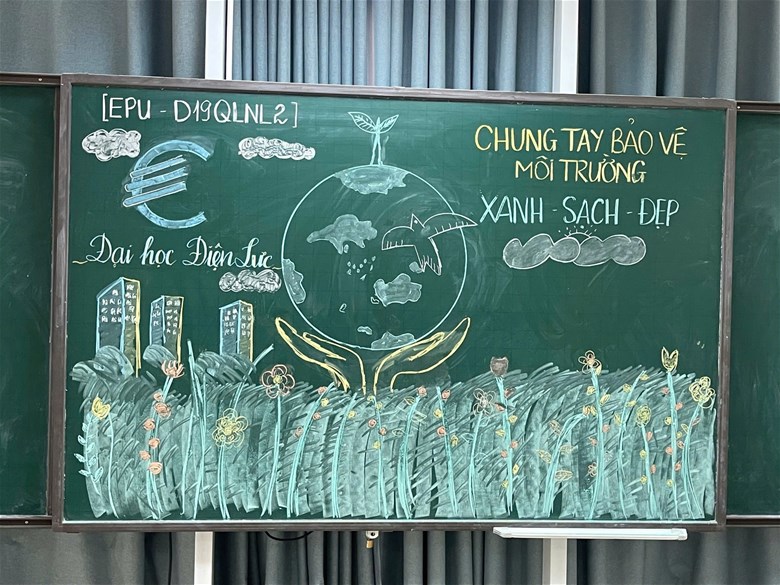 [EPU - D19QLNL2]
Đại học Điện Lực
CHUNG TAY BẢO VỆ
MÔI TRƯỜNG
XANH - SẠCH - ĐẸP